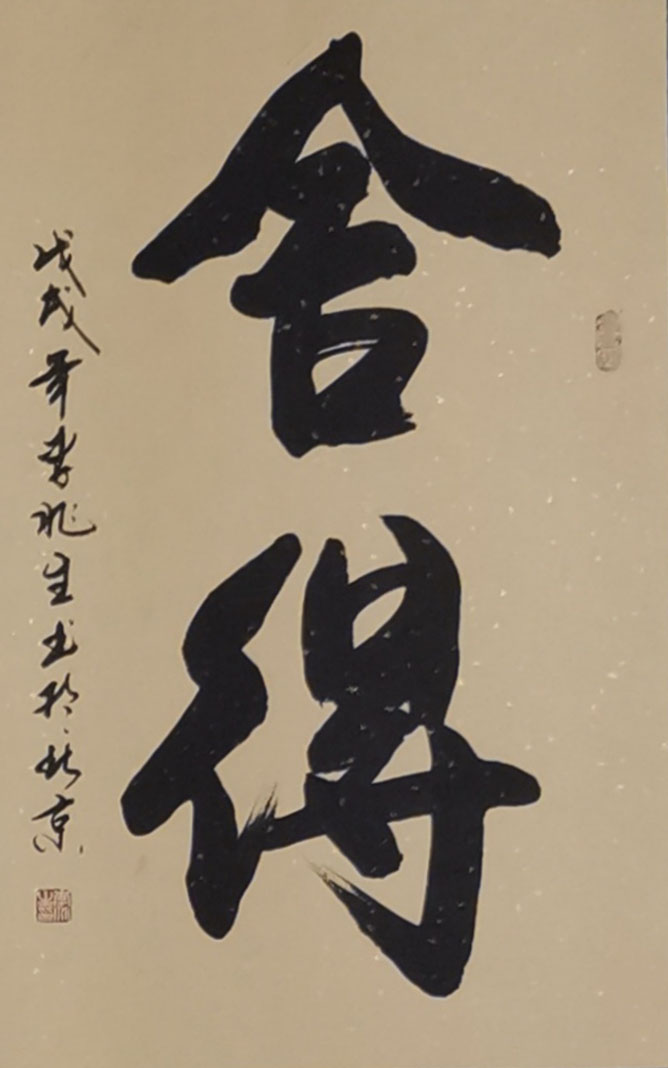 舍得
戊戌年李兆生书於北京